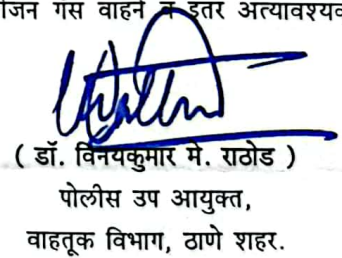 गॅस वाहने व इतर
( डॉ. विनयकुमार मे. राठोड )
पोलीस उप आयुक्त,
वाहतूक विभाग, ठाणे शहर.